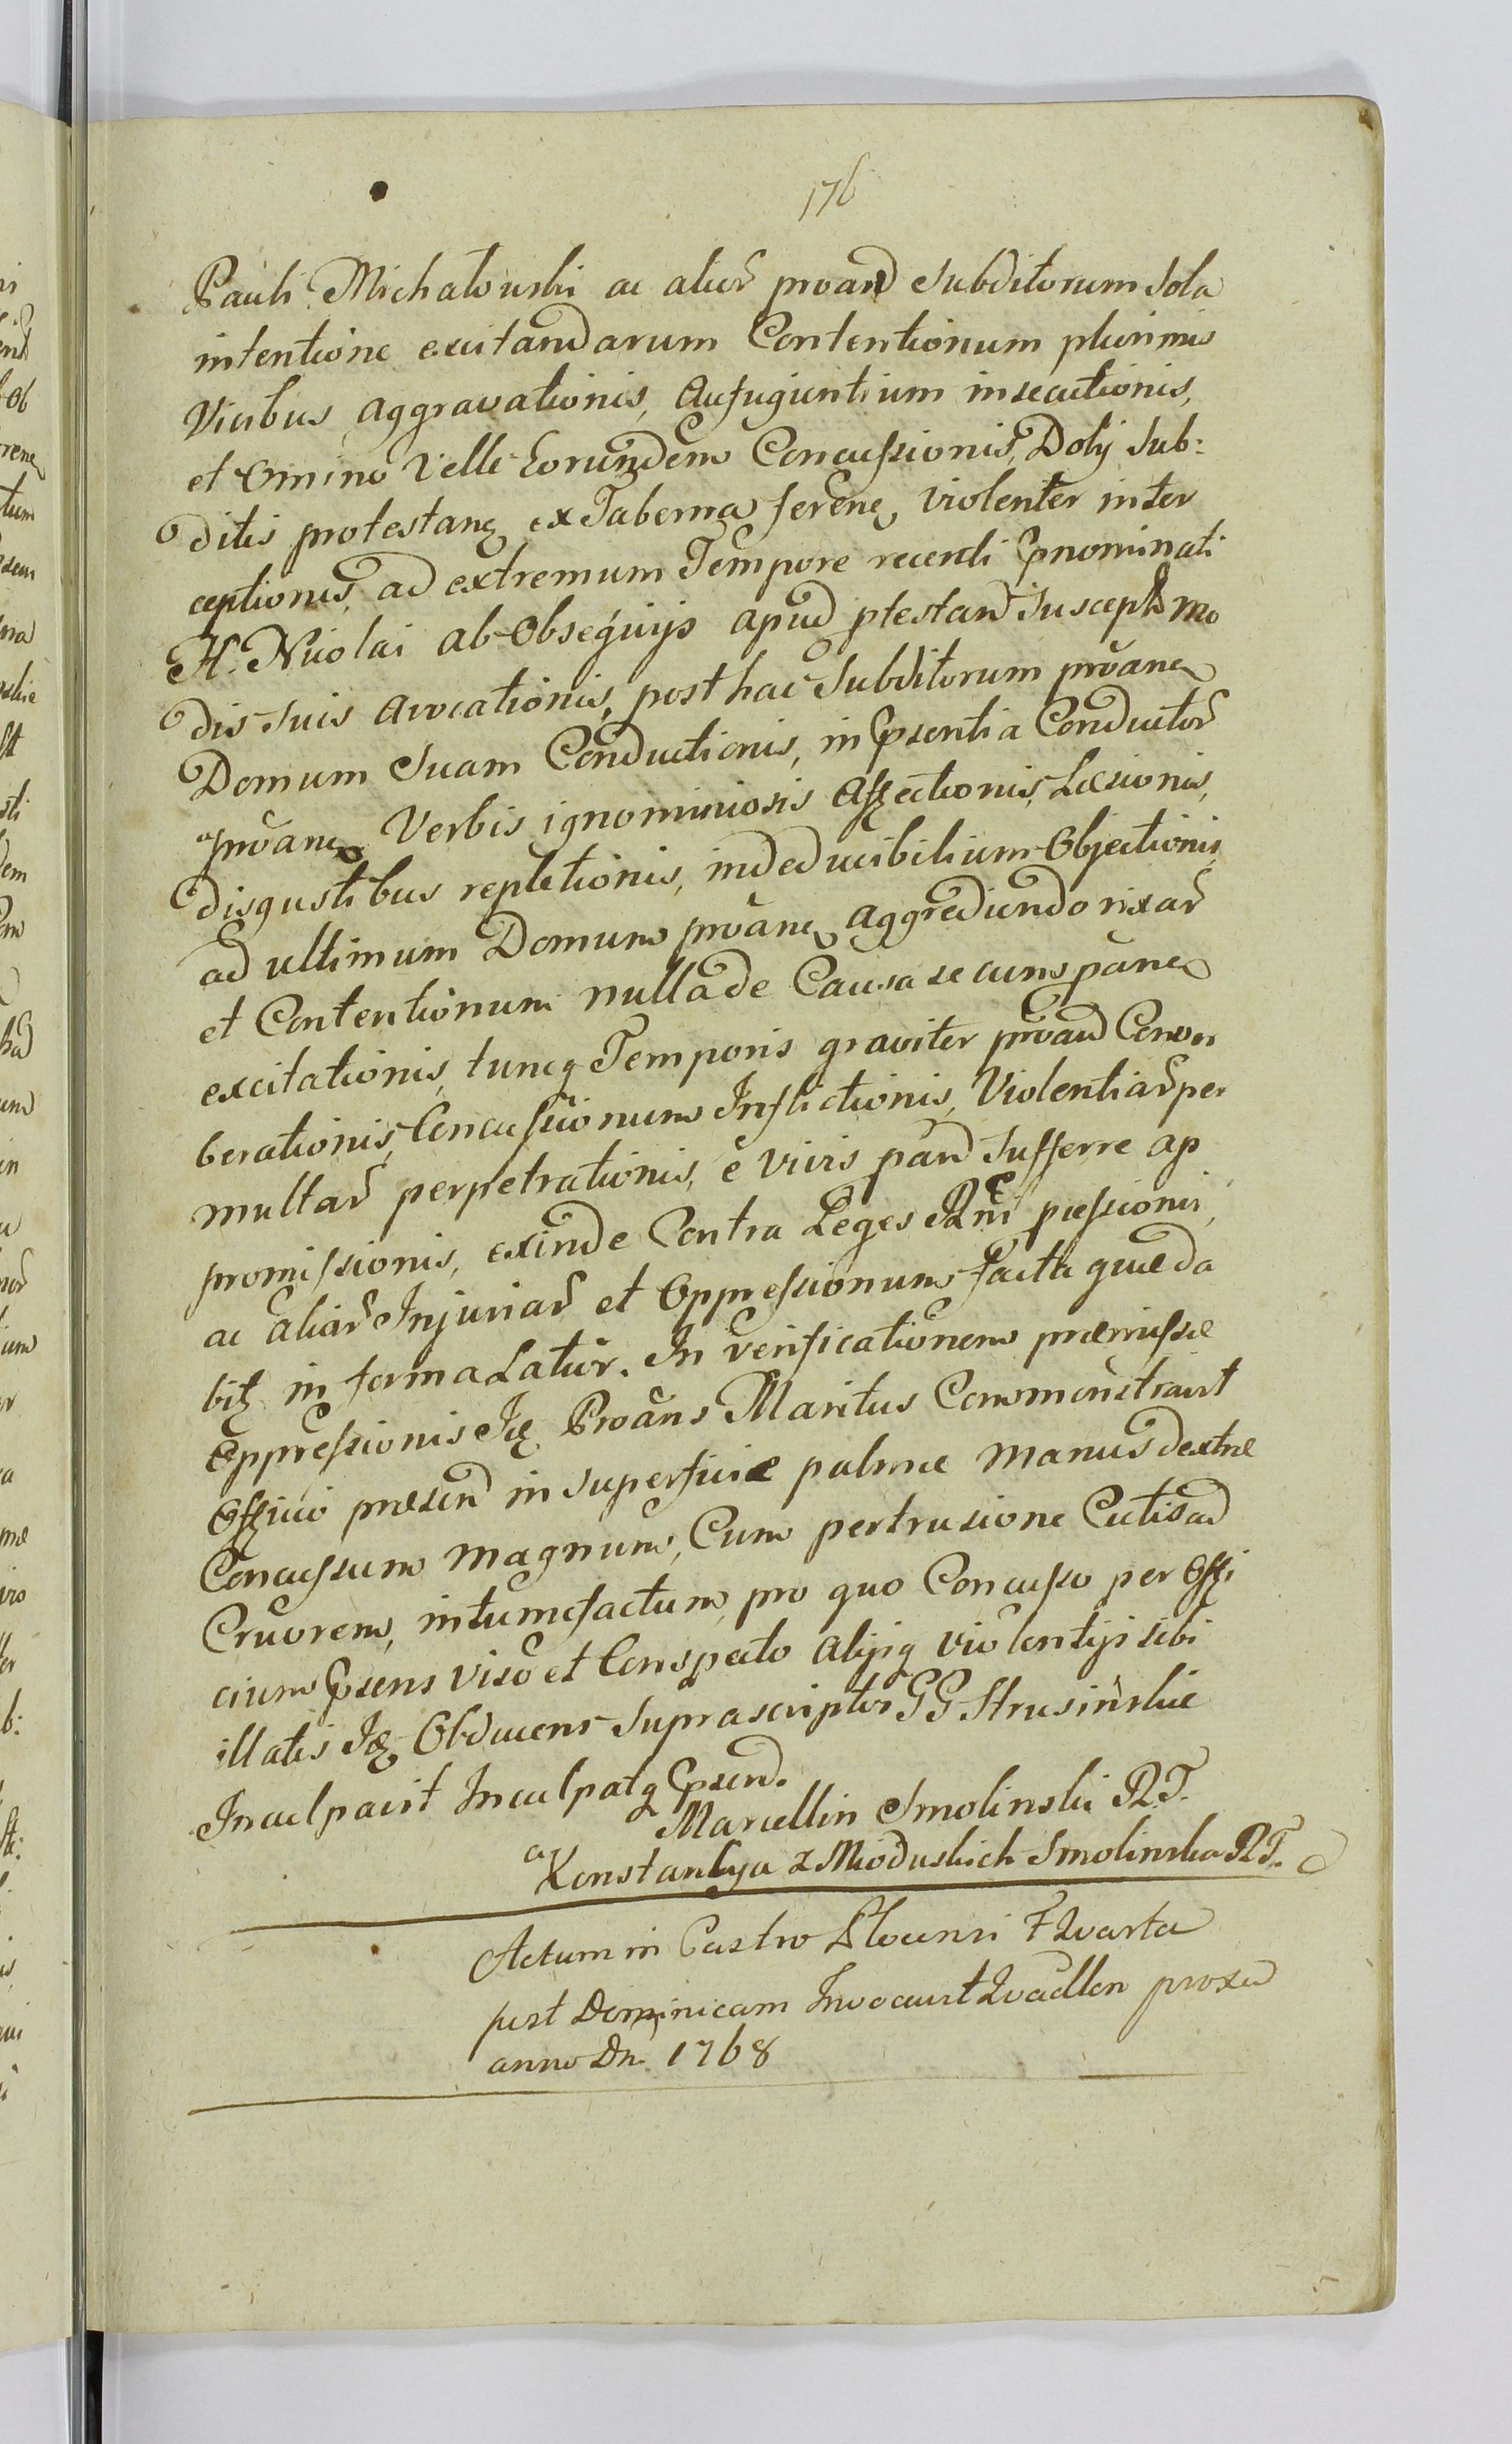 176
Pauli Michałowski ac alior̃ proand Subditorum Sola
intentione excitandarum Contentionum plurimis
Vicibus aggravationis, aufugientium insecutionis,
et omnino Velle Eorundem Concussionis, Dolij Sub:
ditis protestan ex Taberna feren violenter inter
ceptionis, ad extremum Tempore recenti pnominati
H. Nicolai ab Obsequijs apud ptestand Suscept mo
dis suis avocationis, post hac Subditorum proan
Domum Suam Conductionis, in psentia Conductor̃
proan Verbis ignominiosis affectionis, Læsionis,
disgustibus repletionis, indeducibilium Objectionis,
ad ultimum Domum proan aggrediendo rixar̃
et Contentionum nulla de Causa secum pan
excitationis, tuncq Temporis graviter proand Conver
berationis, Concussionum Inflictionis, Violentiar̃ per
multar̃ perpetrationis, e vivis pand Sufferre ap
promissionis, exinde Contra Leges Rni pæssionis,
ac aliar̃ Injuriar̃ et Oppressionum facta quæ da
bit in forma Latior. In verificationem præmissæ
Oppressionis Proans Maritus Commonstravit
Officio præsend in superficie palmæ manus dextræ
Concussum magnum, Cum pertrusione Cutis ad
Cruorem, intumefactum, pro quo Concusso per Offi
cium psens viso et Conspecto alijsq violentijs sibi
illatis Obducens Suprascriptos GG Strusińskie
Inculpavit Inculpatq psend.
Marcellin Smolinski R.T.
Konstancya z Mioduskich Smolinska R.T.
Actum in Castro f Quarta
post Dominicam Invocavit Quadlem proxa
anno Dn. 1768